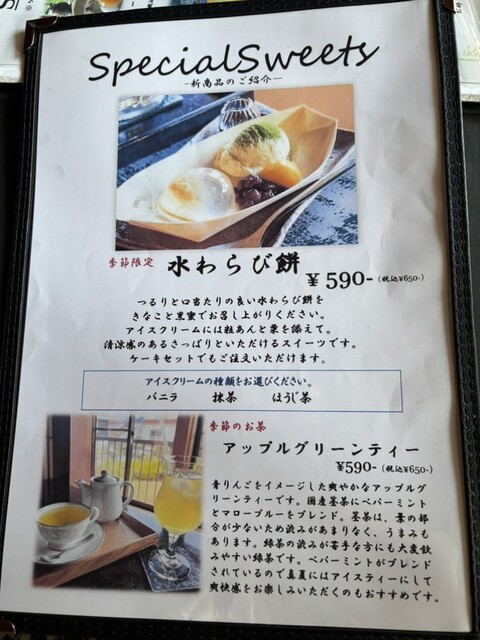 SpecialSweets
-新商品のご紹介-
季節限定 水わらび餅
¥590-(税込¥650-)
つるりと口当たりの良い水わらび餅を
きなこと黒蜜でお召し上がりください。
アイスクリームには粒あんと栗を添えて。
清涼感のあるさっぱりといただけるスイーツです。
ケーキセットでもご注文いただけます。
アイスクリームの種類をお選びください。
バニラ 抹茶 ほうじ茶
季節のお茶
アップルグリーンティー
¥590-(税込¥650-)
青りんごをイメージした爽やかなアップルグ
リーンティーです。国産茎茶にペパーミント
とマローブルーをブレンド。茎茶は、葉の部
分が少ないため渋みがあまりなく、うまみも
あります。緑茶の渋みが苦手な方にも大変飲
みやすい緑茶です。ペパーミントがブレンド
されているので真夏にはアイスティーにして
爽快感をお楽しみいただくのもおすすめです。